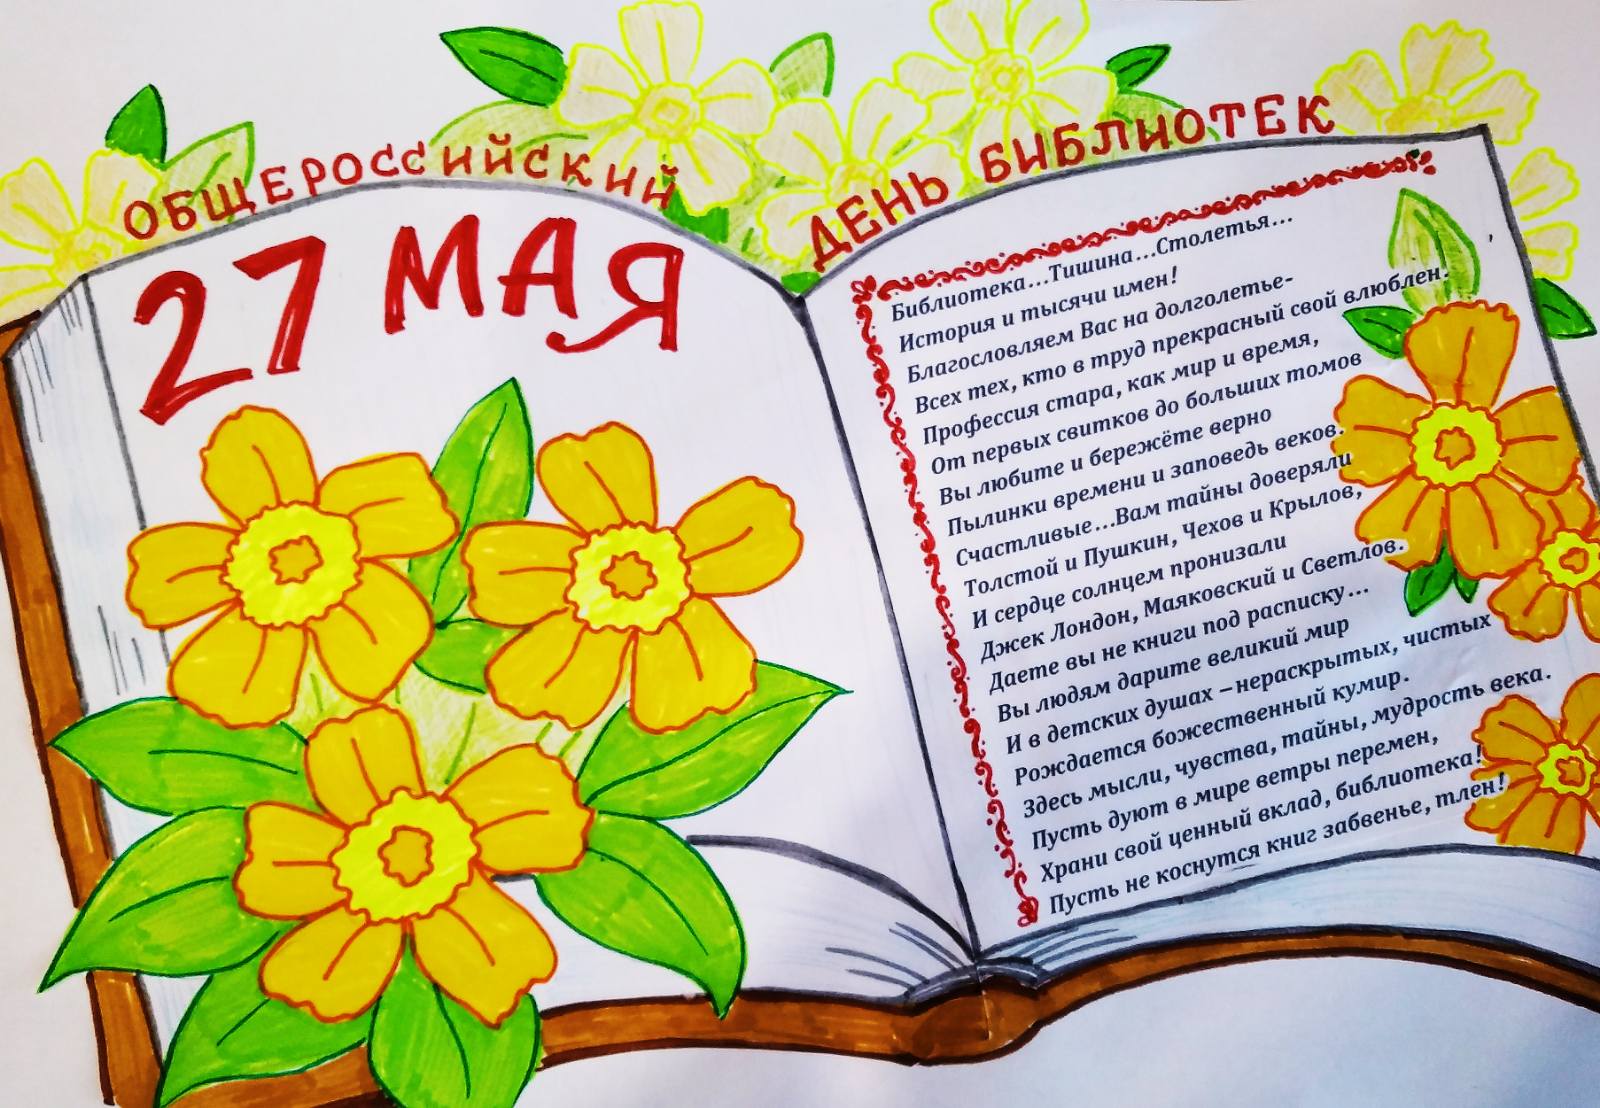 ОБЩЕРОССИЙСКИЙ ДЕНЬ БИБЛИОТЕК
27 МАЯ
Библиотека...Тишина...Столетья...
История и тысячи имен!
Благословляем Вас на долголетье-
Всех тех, кто в труд прекрасный свой влюблен.
Профессия стара, как мир и время,
От первых свитков до больших томов
Вы любите и бережёте верно
Пылинки времени и заповедь веков.
Счастливые...Вам тайны доверяли
Толстой и Пушкин, Чехов и Крылов,
И сердце солнцем пронизали
Джек Лондон, Маяковский и Светлов.
Даете вы не книги под расписку...
Вы людям дарите великий мир
И в детских душах – нераскрытых, чистых
Рождается божественный кумир.
Здесь мысли, чувства, тайны, мудрость века.
Пусть дуют в мире ветры перемен,
Храни свой ценный вклад, библиотека!
Пусть не коснутся книг забвенье, тлен!